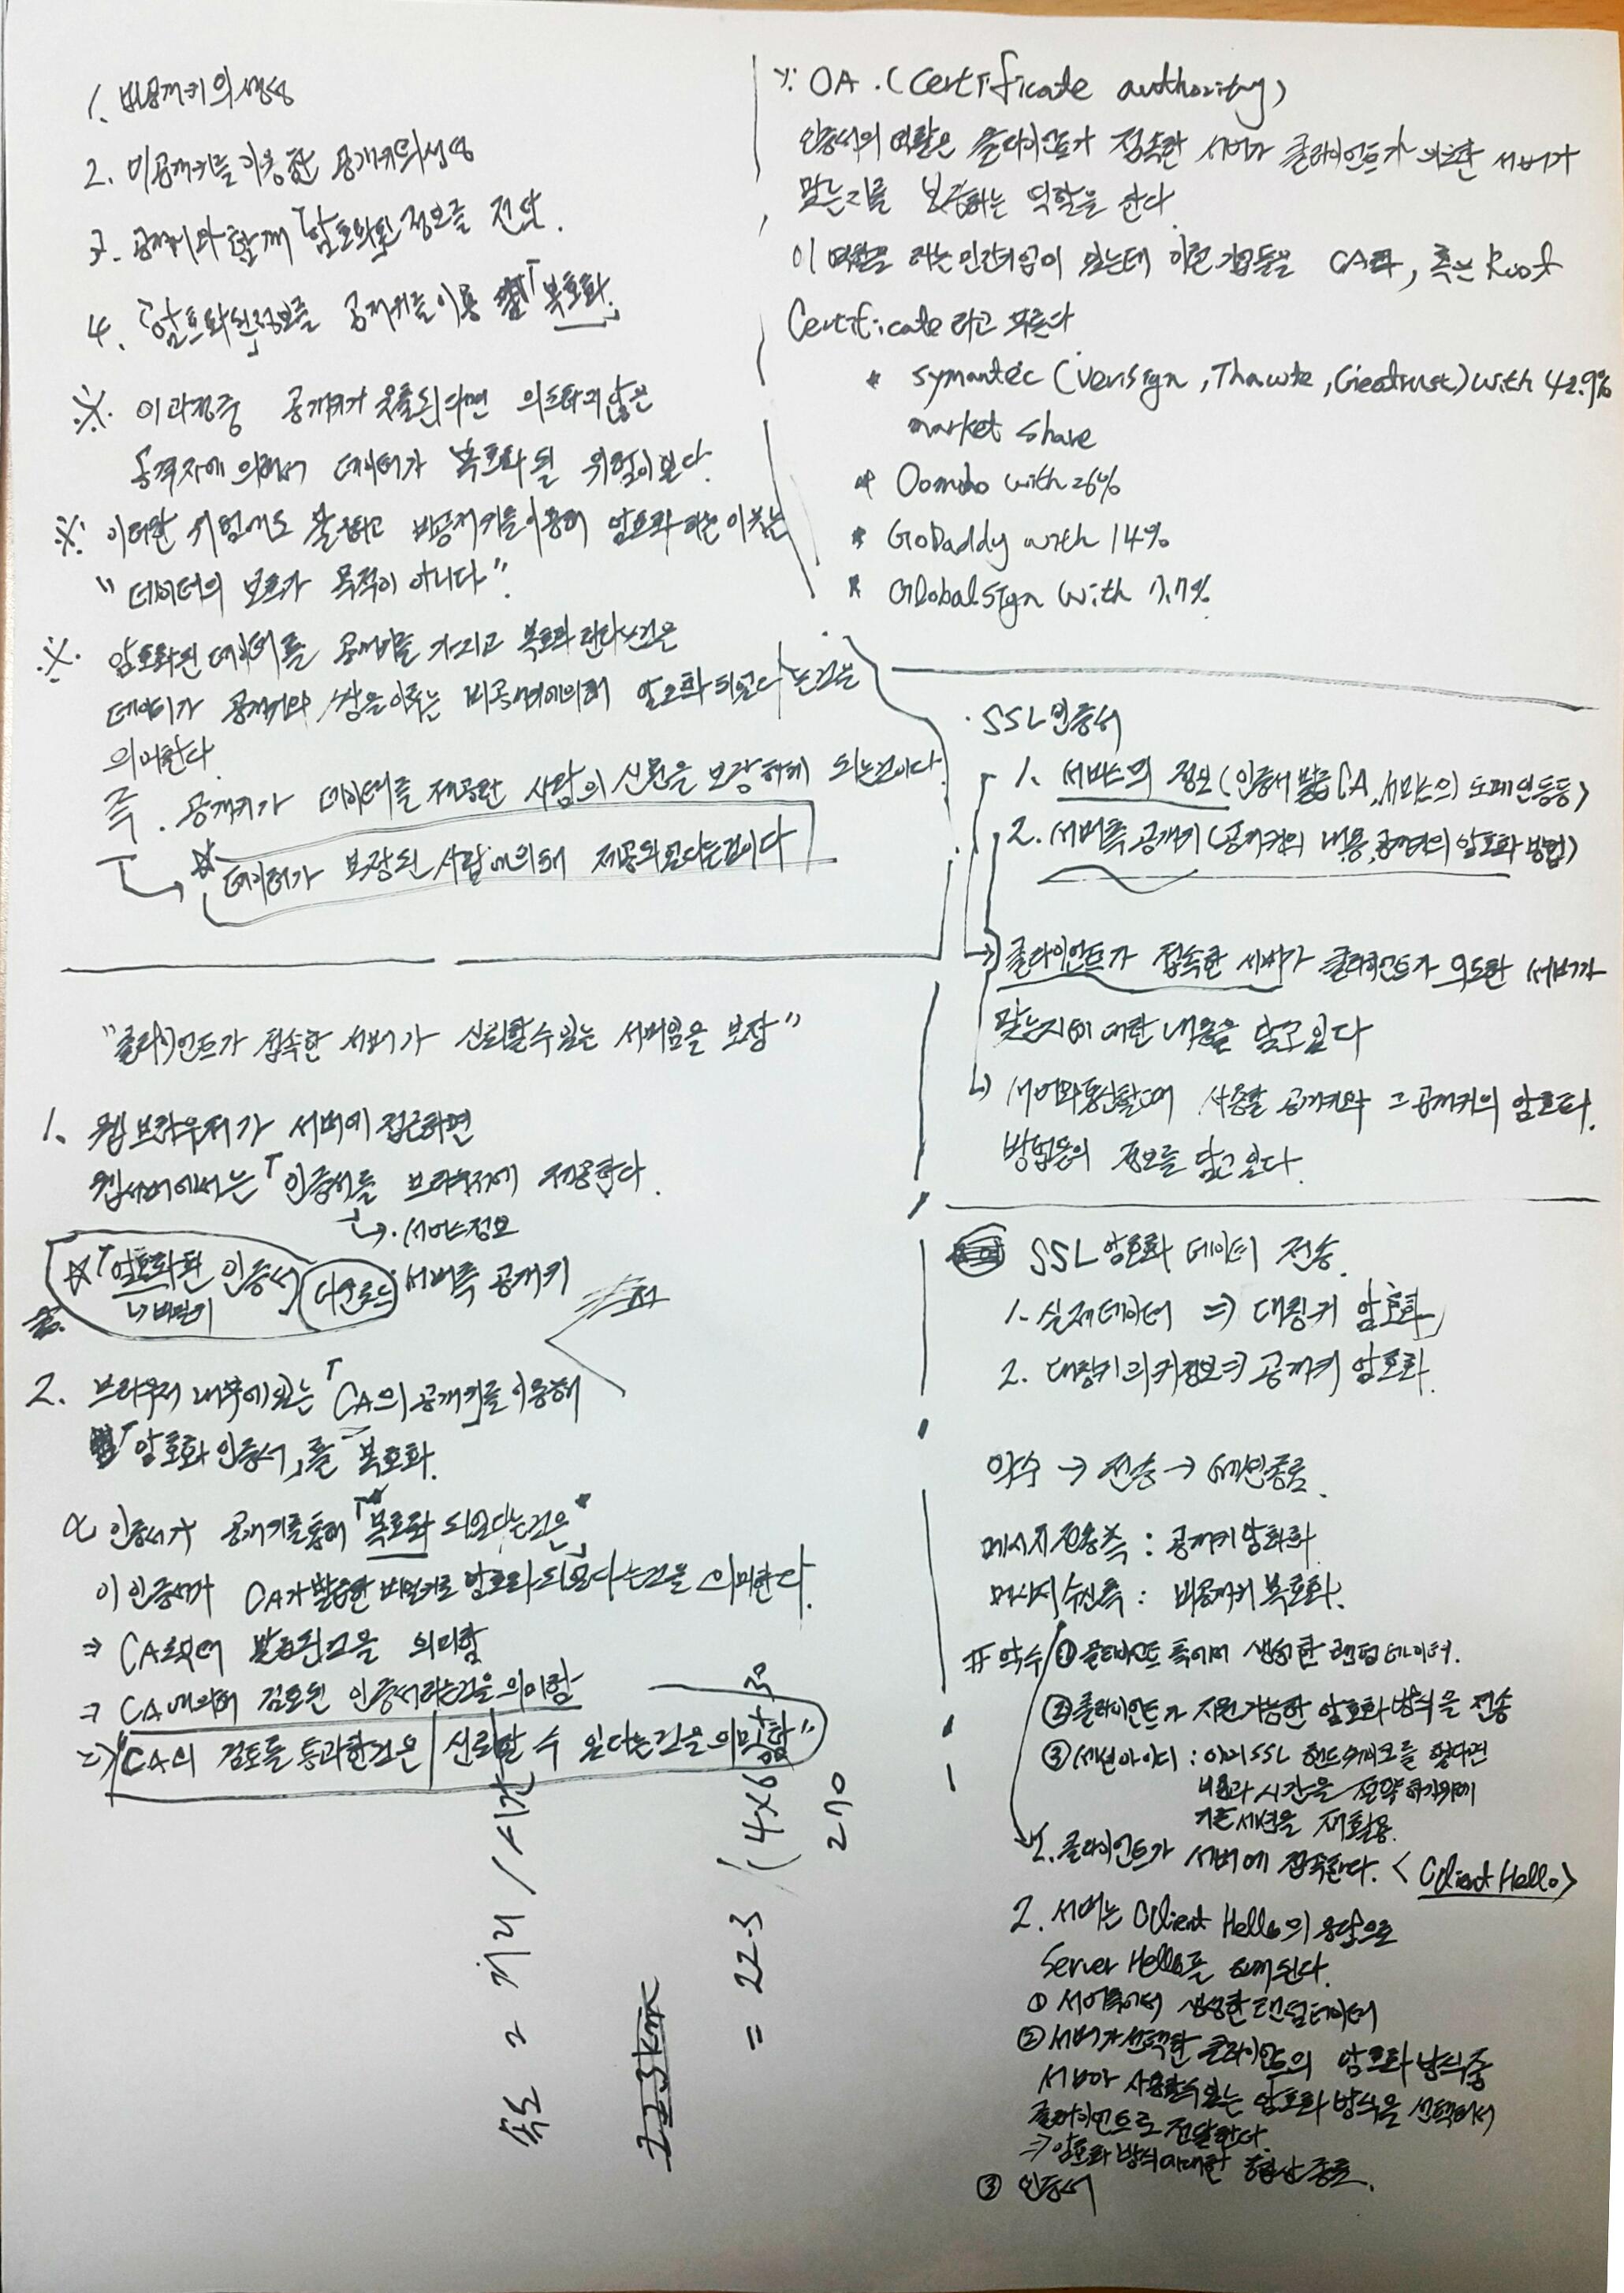 1. 비공개키의 생성
2. 비공개키를 이용한 공개키의 생성
3. 공개키와 함께 「암호화된 정보를 전달.
4. 「암호화된정보」를 공개키를 이용 「복호화」
※. 이과정중 공개키가 유출된다면 의도하지않은
공격자에 의해서 데이터가 복호화 될 위험이 있다.
※. 이러한 위험에도 불구하고 비공개키를이용해 암호화 하는이유는
"데이터의 보호가 목적이 아니다".
※. 암호화된 데이터를 공개키를 가지고 복호화 한다는것은
데이터가 공개키와 쌍을이루는 비공개키에의해 암호화 되었다는것을
의미한다.
즉. 공개키가 데이터를 제공한 사람의 신원을 보장하게 되는것이다.
☆ 데이터가 보장된 사람에의해 제공되었다는것이다
"클라이언트가 접속한 서버가 신뢰할수있는 서버임을 보장"
1. 웹 브라우저가 서버에 접근하면
웹서버에서는 「인증서를 브라우저에 제공한다.
↳ . 서비스정보
☆「암호화된 인증서 다운로드 . 서버측 공개키
↳ 비밀키
2. 브라우저 내부에있는 「CA의 공개키」를 이용해
「암호화 인증서」를 복호화.
α 인증서가 공개키를통해 「복호화 되었다는것은」
이 인증서가 CA가 발급한 비밀키로 암호화 되었다는것을 의미한다.
⇒ CA로부터 발급된것을 의미함
⇒ CA에의해 검토된 인증서라는것을 의미함
⇒ "CA의 검토를 통과한것은 신뢰할 수 있다는것을 의미함"
속도 = 거리 / 시간
22.3km
= 22.3 / (4×60+30)
270
※ OA.(Certificate authority)
인증서의 역할은 클라이언트가 접속한 서버가 클라이언트가 의도한 서버가
맞는지를 보장하는 역할을 한다.
이 역할을 하는 민간기업이 있는데 이런 기업들을 CA라, 혹은 Root
Certificate 라고 부른다
* symantec (Verisign, Thawte, Geotrust) with 42.9%
market share
* Comodo with 26%
* GoDaddy with 14%
* GlobalSign with 7.7%
. SSL인증서
1. 서비스의 정보(인증서 발급 CA, 서비스의 도메인등등)
2. 서버측 공개키(공개키의 내용, 공개키의 암호화 방법)
→ 클라이언트가 접속한 서버가 클라이언트가 의도한 서버가
맞는지에 대한 내용을 담고 있다
↳ 서버와통신할때 사용할 공개키와 그공개키의 암호화.
방법등의 정보를 담고 있다.
SSL 암호화 데이터 전송.
1. 실제데이터 ⇒ 대칭키 암호화
2. 대칭키의 키정보 ⇒ 공개키 암호화.
악수 → 전송 → 세션종료.
메시지 전송측 : 공개키암호화
메시지 수신측 : 비공개키 복호화.
# 악수 ① 클라이언트 측에서 생성한 랜덤 데이터.
② 클라이언트가 지원가능한 암호화 방식을 전송
③ 세션아이디 : 이미SSL 핸드쉐이크를 했다면
비용과 시간을 절약하기위해
기존세션을 재활용.
1. 클라이언트가 서버에 접속한다. <Client Hello>
2. 서버는 Client Hello의 응답으로
Server Hello를 하게 된다.
① 서버측에서 생성한 랜덤데이터
② 서버가 선택한 클라이언트의 암호화 방식중
서버가 사용할수있는 암호화 방식을 선택해서
클라이언트로 전달한다.
⇒ 암호화 방식에대한 협상 종료.
③ 인증서